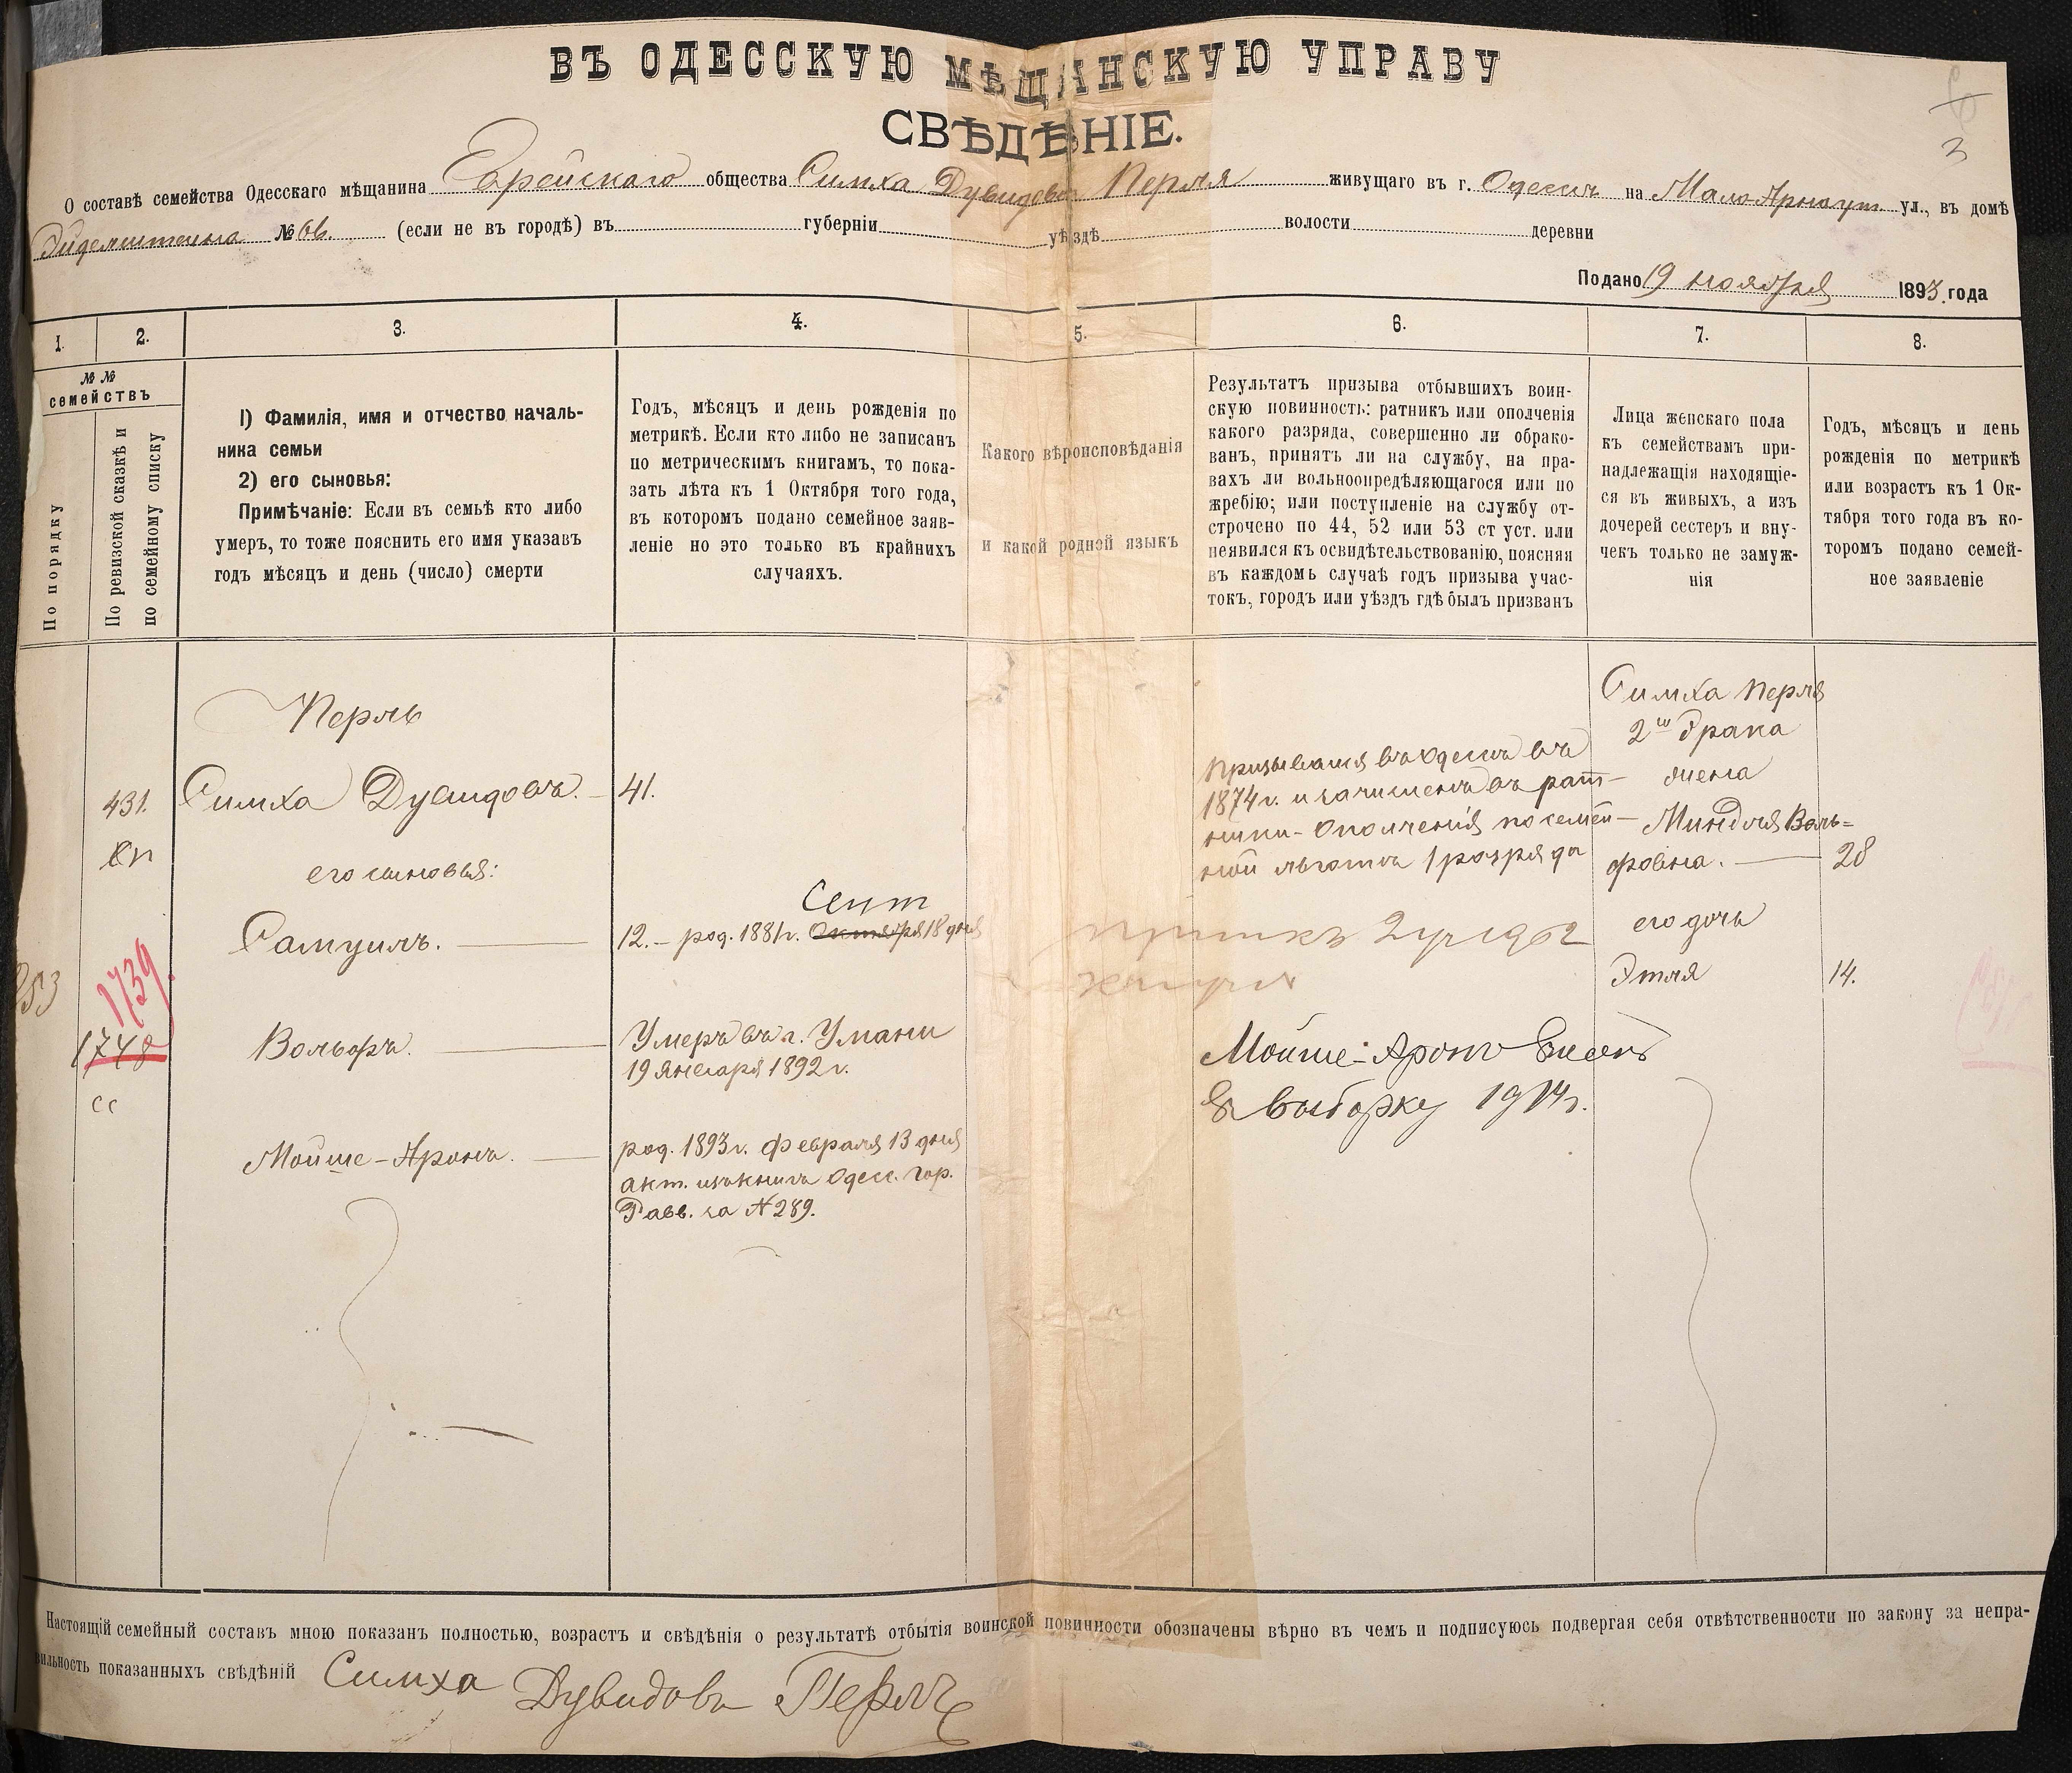 ВЪ ОДЕССКУЮ МѢЩАНСКУЮ УПРАВУ
СВѢДѢНІЕ.
О составѣ семейства Одесскаго мѣщанина Еврейскаго общества Симха Дувидовъ Перля живущаго въ г. Одессѣ на Мало-Арнаут ул., въ домѣ
№ 66. (если не въ городѣ) въ губерніи уѣздѣ волости деревни
Подано 19 ноября 1893 года
1. 2. 3. 4. 5. 6. 7. 8.
№ №
семействъ
По порядку
По ревизской сказкѣ и
по семейному списку
1) Фамилія, имя и отчество началь-
ника семьи
2) его сыновья:
Примѣчаніе: Если въ семьѣ кто либо
умеръ, то тоже пояснить его имя указавъ
годъ мѣсяцъ и день (число) смерти
Годъ, мѣсяцъ и день рожденія по
метрикѣ. Если кто либо не записанъ
по метрическимъ книгамъ, то пока-
зать лѣта къ 1 Октября того года,
въ которомъ подано семейное заяв-
леніе но это только въ крайнихъ
случаяхъ.
Какого вѣроисповѣданія
и какой родной языкъ
Результатъ призыва отбывшихъ воин-
скую повинность: ратникъ или ополченія
какого разряда, совершенно ли обрако-
ванъ, принятъ ли на службу, на пра-
вахъ ли вольноопредѣляющагося или по
жребію; или поступленіе на службу от-
строчено по 44, 52 или 53 ст уст. или
неявился къ освидѣтельствованію, поясняя
въ каждомъ случаѣ годъ призыва учас-
токъ, городъ или уѣздъ гдѣ былъ призванъ
Лица женскаго пола
къ семействамъ при-
надлежащія находящіе-
ся въ живыхъ, а изъ
дочерей сестеръ и вну-
чекъ только не замуж-
нія
Годъ, мѣсяцъ и день
рожденія по метрикѣ
или возрастъ къ 1 Ок-
тября того года въ ко-
торомъ подано семей-
ное заявленіе
Перль
431. Симха Дувидовъ. 41.
его сыновья:
Самуилъ. 12. – род. 1881г. Октября Сент 18 дня
253
1739.
1748
Вольфъ. Умеръ въ г. Умани
19 января 1892 г.
сс
Мойше-Аронъ. род. 1893 г. февраля 13 дня
акт. изъ книгъ Одес. гор.
Равв. за № 289.
Призывался въ Одессѣ въ
1874 г. и зачисленъ въ рат-
ники-ополченія по семей-
ной льготѣ 1 разряда
Мойше-Аронъ внесенъ
в выборку 1914 г.
Симха Перля
2го брака
жена
Миндля Воль=
фовна. 28
его дочь
Этля 14.
Настоящій семейный составъ мною показанъ полностью, возрастъ и свѣдѣнія о результатѣ отбытія воинской повинности обозначены вѣрно въ чемъ и подписуюсь подвергая себя отвѣтственности по закону за непра-
вильность показанныхъ свѣдѣній Симха Дувидовъ Перль